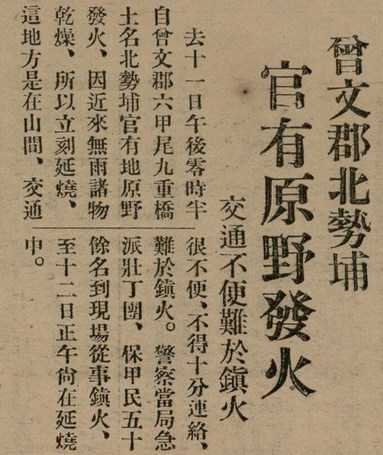 曾文郡北勢埔
官有原野發火
交通不便難於鎭火
去十一日午後零時半
自曾文郡六甲尾九重橋
土名北勢埔官有地原野
發火、因近來無雨諸物
乾燥、所以立刻延燒、
這地方是在山間、交通
很不便、不得十分連絡、
難於鎭火。警察當局急
派壯丁團、保甲民五十
餘名到現場從事鎭火、
至十二日正午尙在延燒
中。